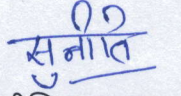 सुनीति